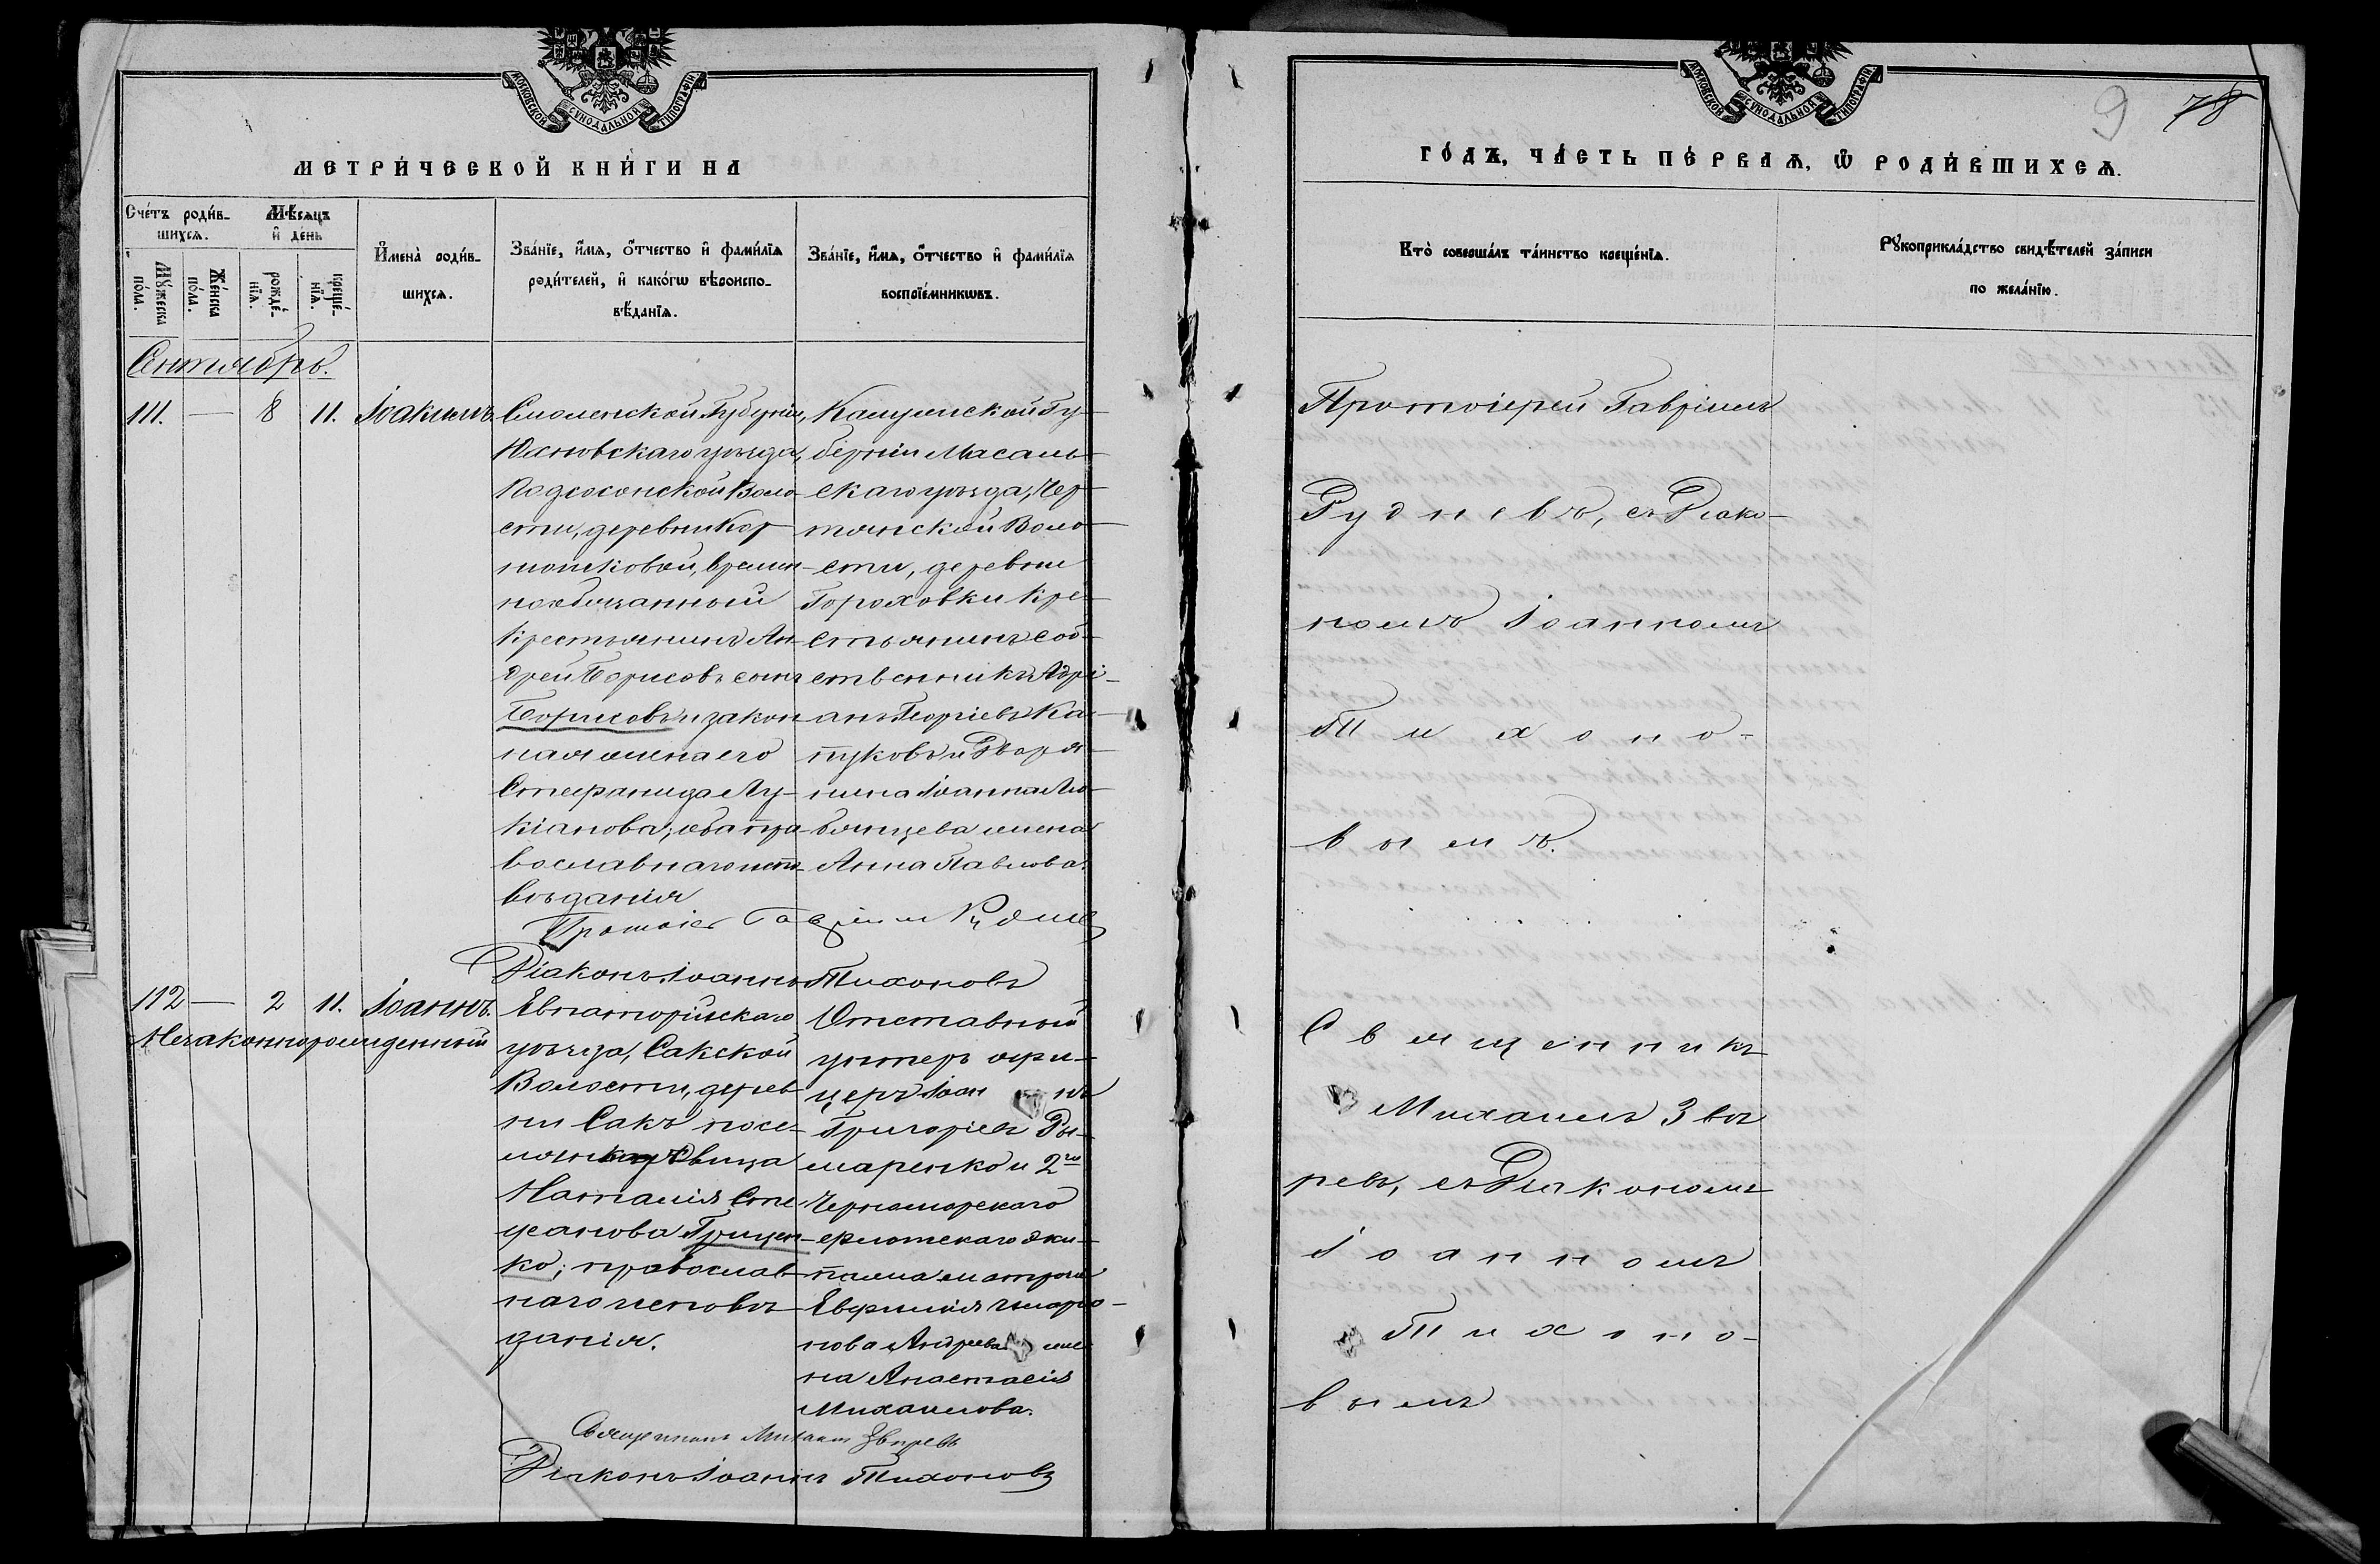 МОСКОВСКОЙ СѴНОДАЛЬНОЙ ТИПОГРАФІИ
МЕТРИ́ЧЕСКОЙ КНИ́ГИ НА
Сче́тъ роди́в-
шихсѧ.
Мѣ́сѧцъ
и҆ де́нь
Мꙋ́жеска
по́ла.
Же́нска
по́ла.
рожде́-
нїѧ.
креще́-
нїѧ.
И҆мена̀ роди́в-
шихсѧ.
Зва́нїе, и҆́мѧ, ѻ҆́тчество и҆ фами́лїѧ
роди́телей, и҆ како́гѡ вѣроиспо-
вѣ́данїѧ.
Зва́нїе, и҆́мѧ, ѻ҆́тчество и҆ фами́лїѧ
воспрїе́мникѡвъ.
Сентябрь.
111. — 8 11. Іоакимъ.
Смоленской Губерніи,
Юхновскаго уѣзда,
Подсосонской Воло-
сти, деревни
времен-
нообязанный
Крестьянинъ Ан-
дрей Борисовъ сынъ
Борисовъ и закон-
ная жена его
Стефанида Лу-
кіанова; оба пра-
вославнаго испо-
вѣданія
Калужской Гу-
берніи Масаль-
скаго уѣзда, Чер-
тянской Воло-
сти, деревни
Гороховки Кре-
стьянинъ соб-
ственникъ Адрі-
анъ Георгіевъ Ка-
пуковъ и Дворя-
нина Іоанна
жена
Анна Павлова.
Протоіер Гавріил Руднев
Діаконъ Іоаннъ Тихоновъ
112 — 2 11. Іоаннъ.
Незаконнорожденный
Евпаторійскаго
уѣзда, Сакской
Волости, дерев-
ни Сакъ посе-
лянка дѣвица
Наталія Сте-
фанова Грицен-
ко; православ-
наго исповѣ-
данія.
Отставный
унтеръ офи-
церъ Іоаннъ
Григоріевъ Ры-
маренко и 2го
Черноморскаго
флотскаго эки-
пажа матроса
Андреева же-
на Анастасія
Михаилова.
Священникъ Михаил Звѣревъ
Діаконъ Іоаннъ Тихоновъ
МОСКОВСКОЙ СѴНОДАЛЬНОЙ ТИПОГРАФІИ
9 78
ГО́ДЪ, ЧА́СТЬ ПЕ́РВАѦ, Ѽ РОДИ́ВШИХСѦ.
Кто̀ соверша́лъ та́инство креще́нїѧ.
Рꙋкоприкла́дство свидѣ́телей за́писи
по жела́нїю.
Протоіерей Гавріилъ
Рудневъ, съ Діако-
номъ Іоанномъ
Тихоно-
вымъ.
Священникъ
Михаилъ Звѣ-
ревъ, съ Діакономъ
Іоанномъ
Тихоно-
вымъ